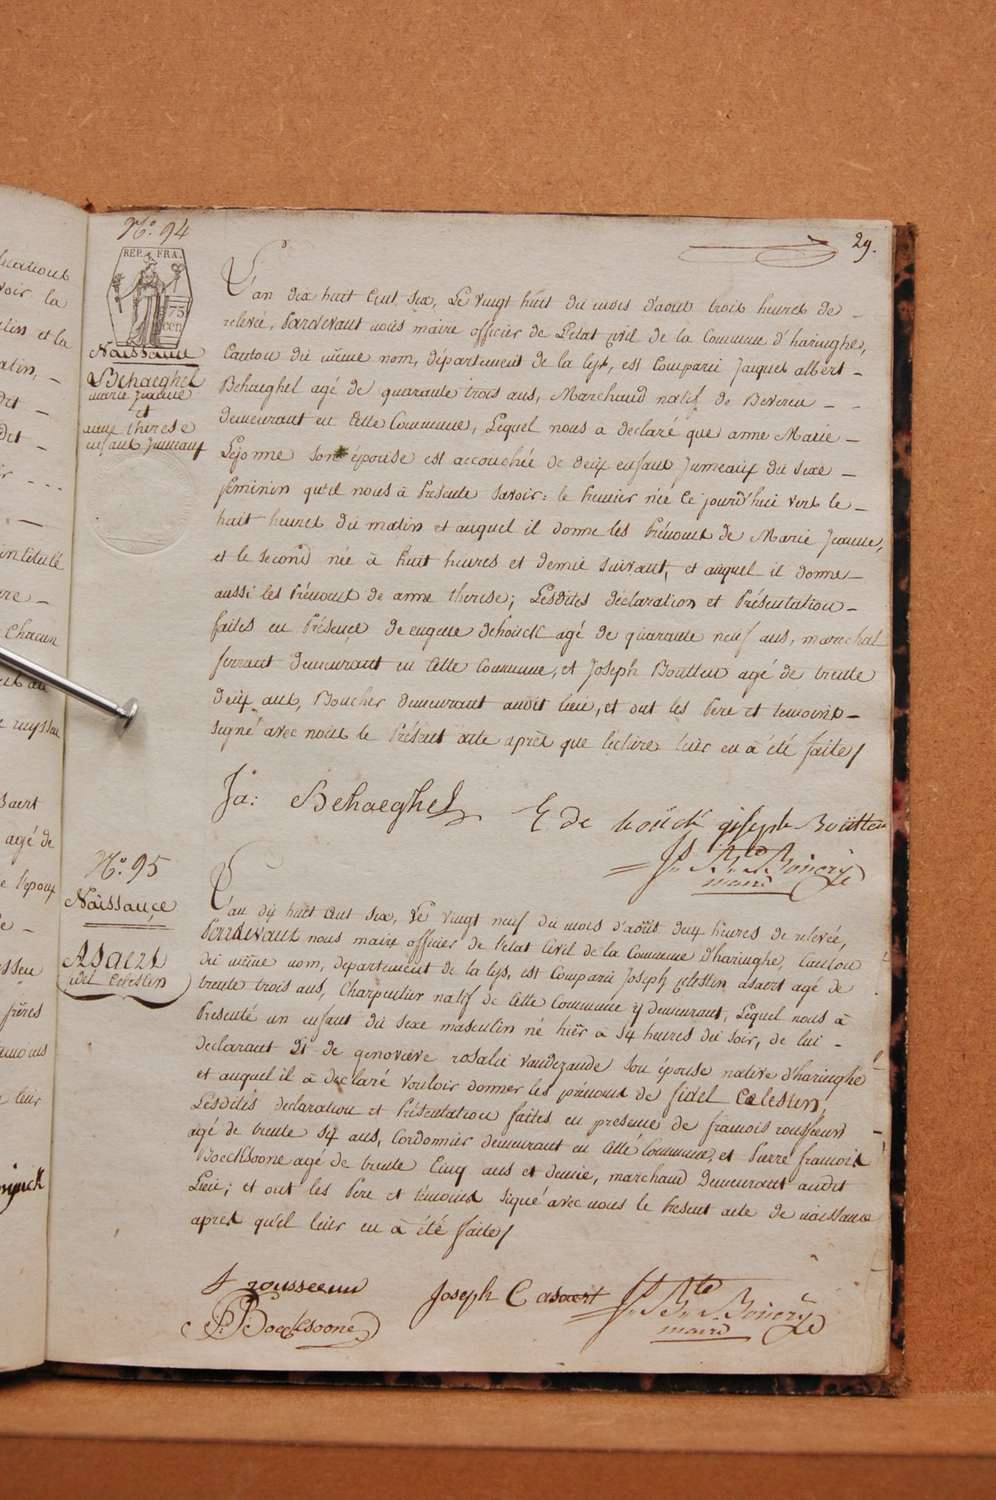 29.
N.° 94
REP. FRA.
75
cen
Naissance
Behaeghel
marie jeanne
et
anne therese
enfans jumeaux
L'an dix huit cent six, Le vingt huit du mois d'aout trois heures de
relevée, Pardevant nous maire officier de L'etat civil de la Commune d'haringhe,
Canton du même nom, département de la lys, est Comparu Jacques albert
Behaeghel agé de quarante trois ans, Marchand natif de Beveren
demeurant en Cette Commune, Lequel nous a declaré que anne Marie
Lejonne son épouse est accouchée de deux enfans Jumeaux du sexe
feminin qu'il nous à Presenté savoir: le Premier née Ce jourd'hui vers le
huit heures du matin et auquel il donne les Prénoms de Marie Jeanne,
et le second née à huit heures et demie suivant, et auquel il donne
aussi les Prénoms de anne therese; Lesdites déclaration et Présentation
faites en Présence de eugene dehouck agé de quarante neuf ans, marechal
ferrant demeurant en Cette Commune, et Joseph Boutten agé de trente
deux ans, Boucher demeurant audit Lieu, et ont les Pere et temoins
signé avec nous le Présent acte après que lecture leur en à été faite/
Ja: Behaeghel
E de houck joseph Boutten
maire
N.° 95
Naissance
Asaert
fidel Celestin
L'an dix huit Cent six, Le vingt neuf du mois d'août deux heures de relevée,
Pardevant nous maire officier de l'etat Civil de la Commune d'haringhe, Canton
du même nom, département de la lys, est Comparu Joseph Celestin asaert agé de
trente trois ans, Charpentier natif de Cette Commune y demeurant, Lequel nous à
Presenté un enfant du sexe masculin né hier a six heures du soir, de lui
declarant et de genovieve rosalie vandezande son épouse native d'haringhe
et auquel il à declaré vouloir donner les prénoms de fidel Celestin,
Lesdites declaration et Présentation faites en presence de francois rousseeuw
agé de trente six ans, Cordonnier demeurant en Cette Commune, et Pierre francois
Boecksoone agé de trente Cinq ans et demie, marchand demeurant audit
Lieu; et ont les Pere et témoins signé avec nous le Present acte de naissance
apres qu'il leur en à été faite/
f rousseeuw
Joseph C asaert
P: F: Boecksoone
maire